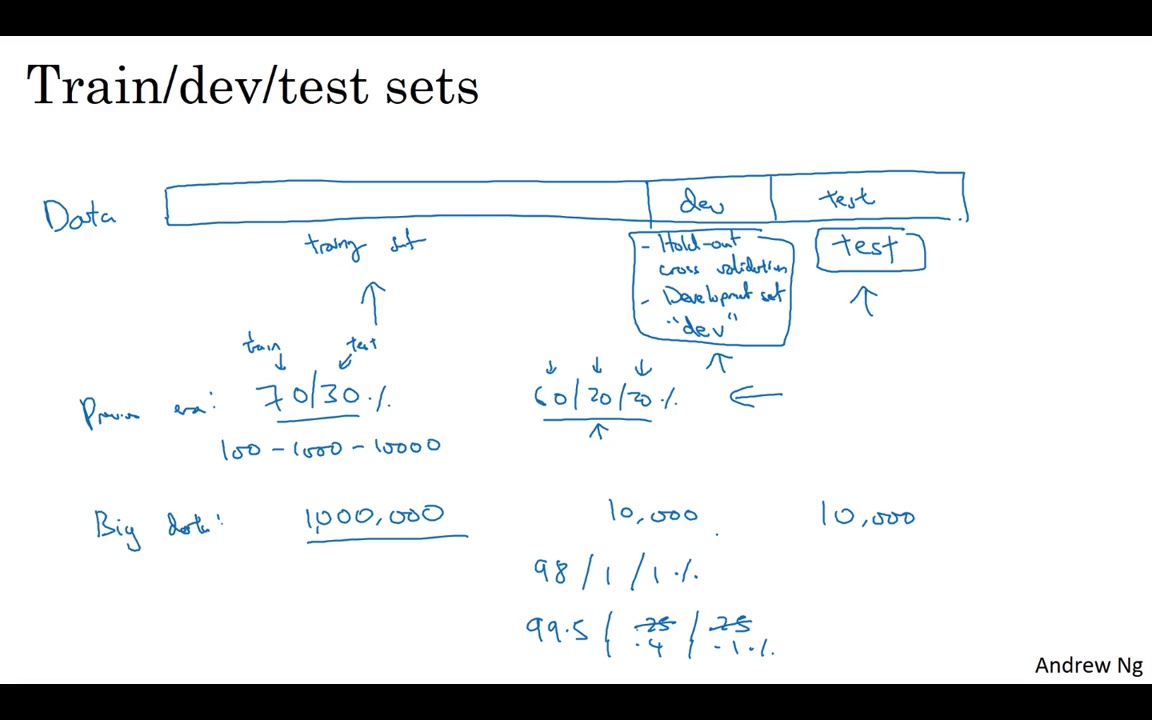 Train/dev/test sets
Data
dev
test
training set
- Hold-out
cross validation
- Development set
"dev"
test
train
test
Previous era:
70/30%
60/20/20%
100 - 1000 - 10000
Big data:
1,000,000
10,000
10,000
98/1/1%
99.5/.25/.25
.4/.1%
Andrew Ng